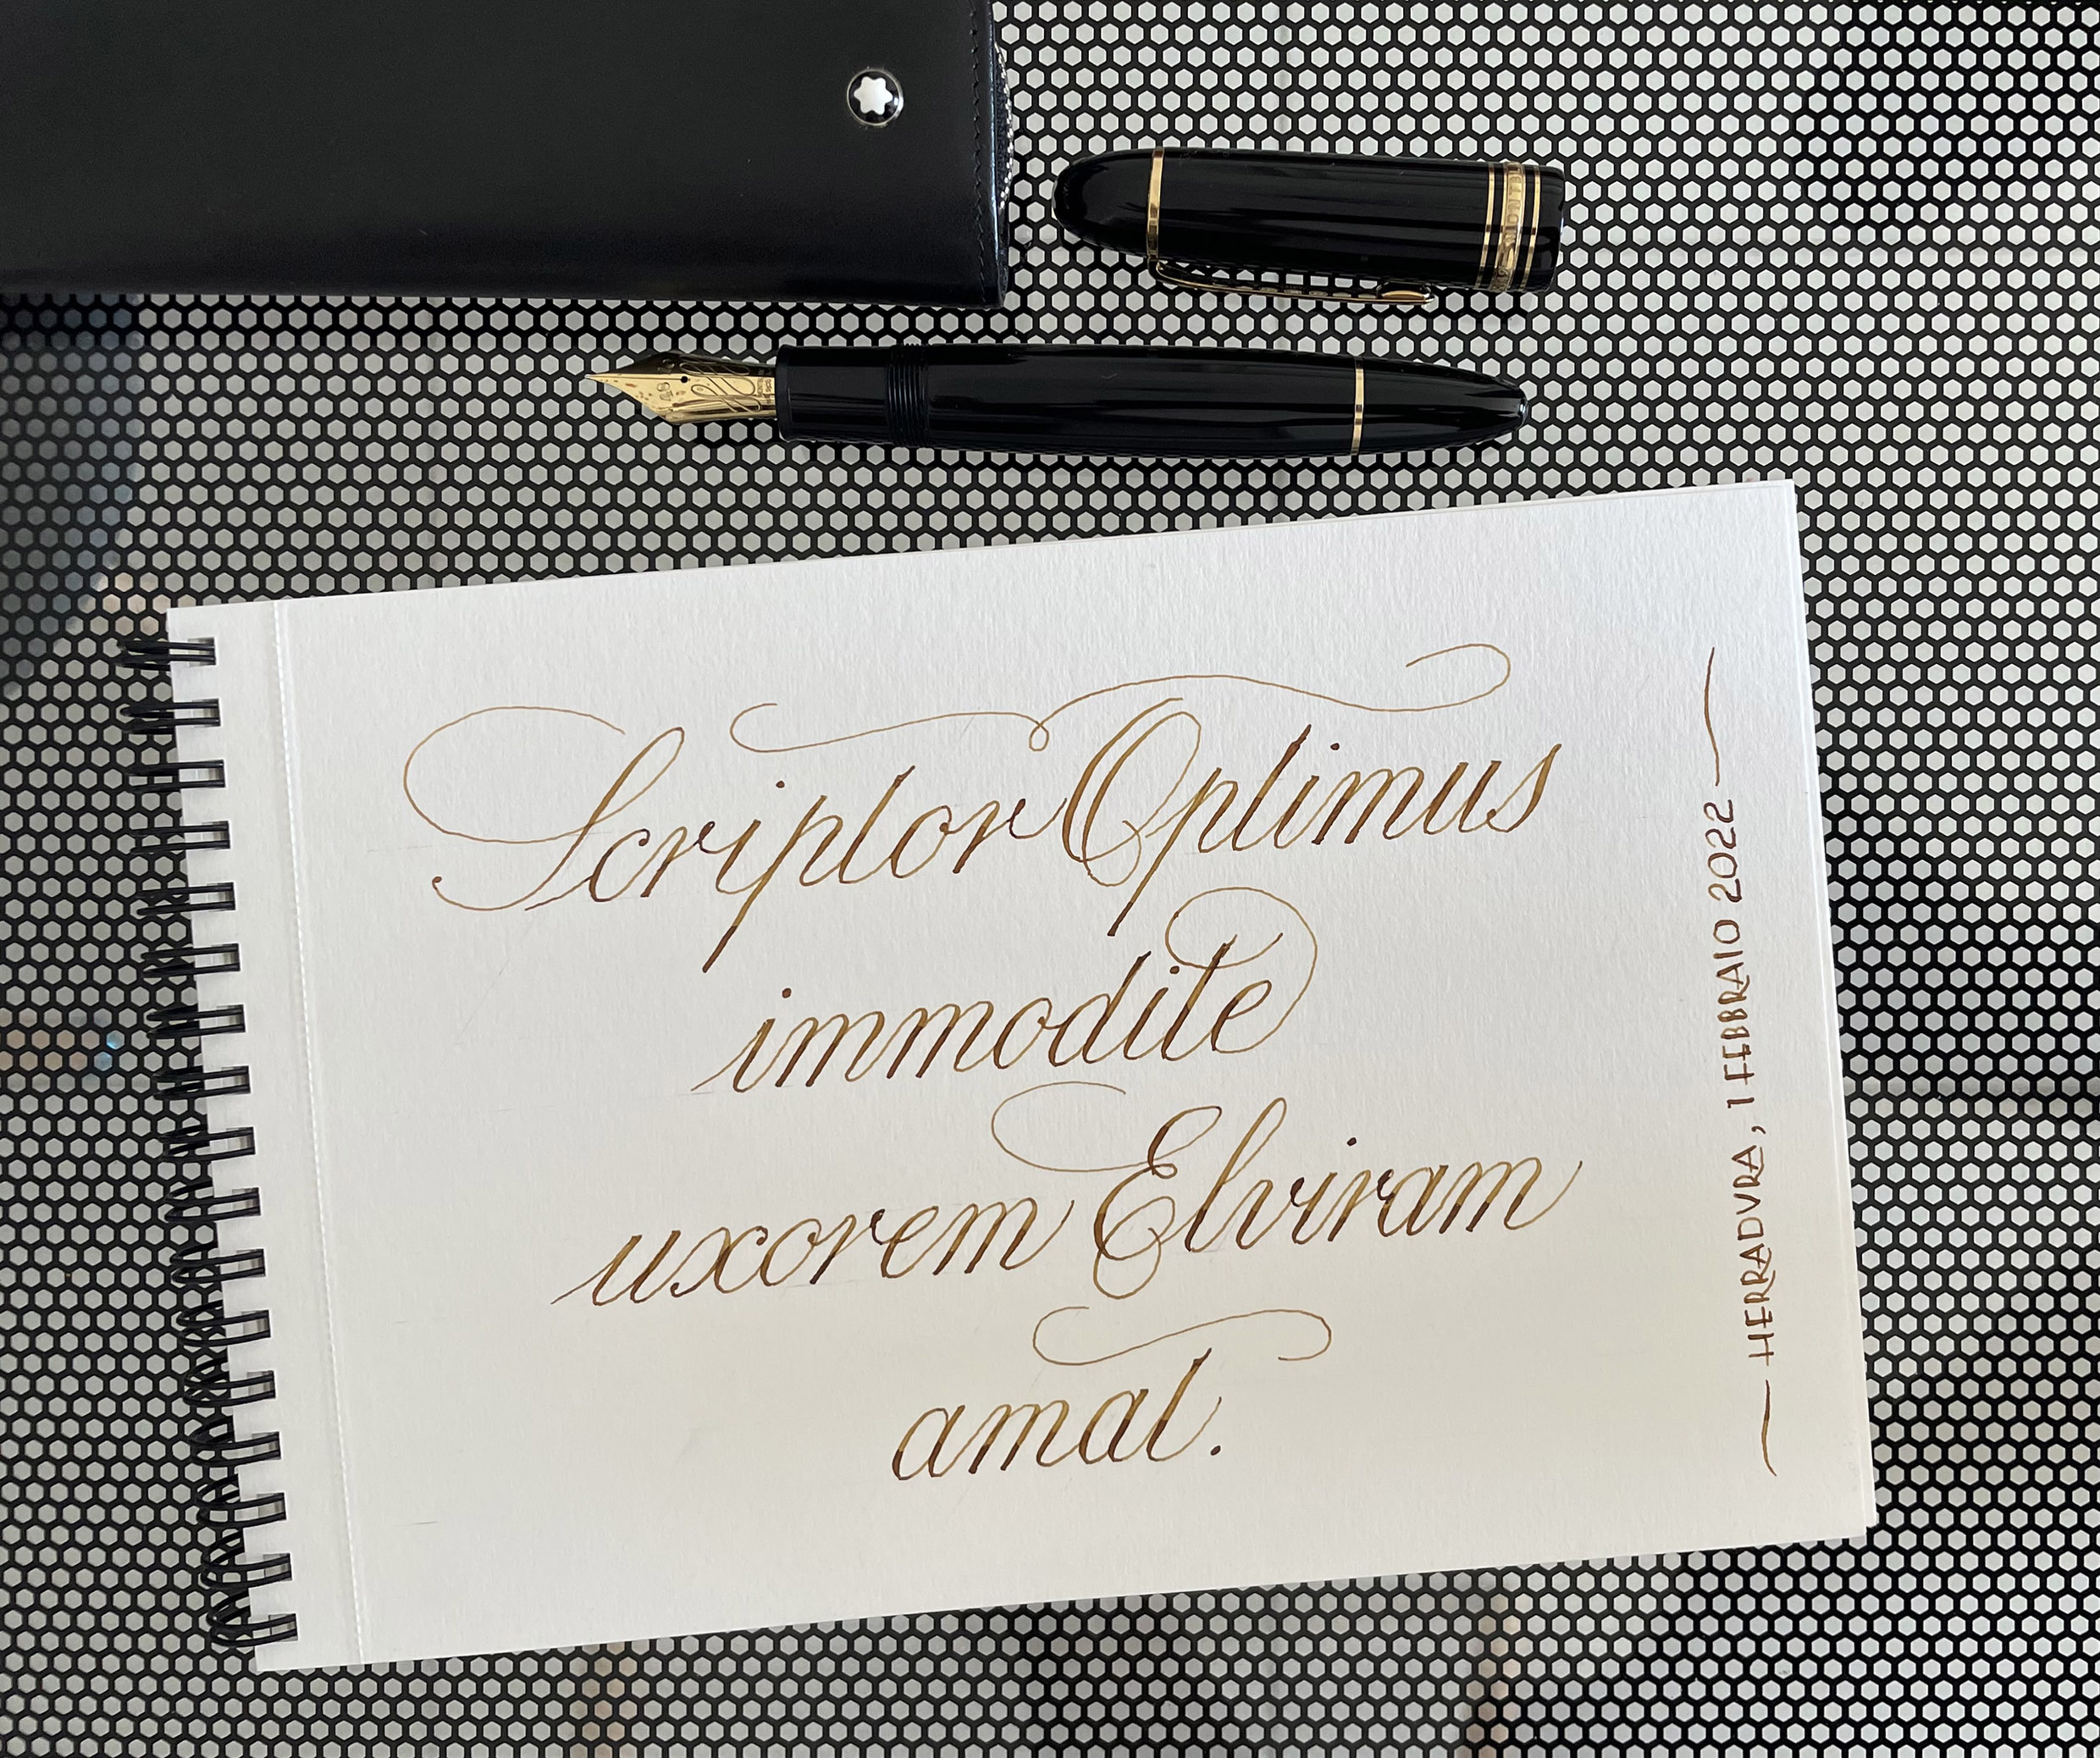 Scriptor Optimus
immodite
uxorem Elviram
amat.
HERRADVRA, 1 FEBBRAIO 2022